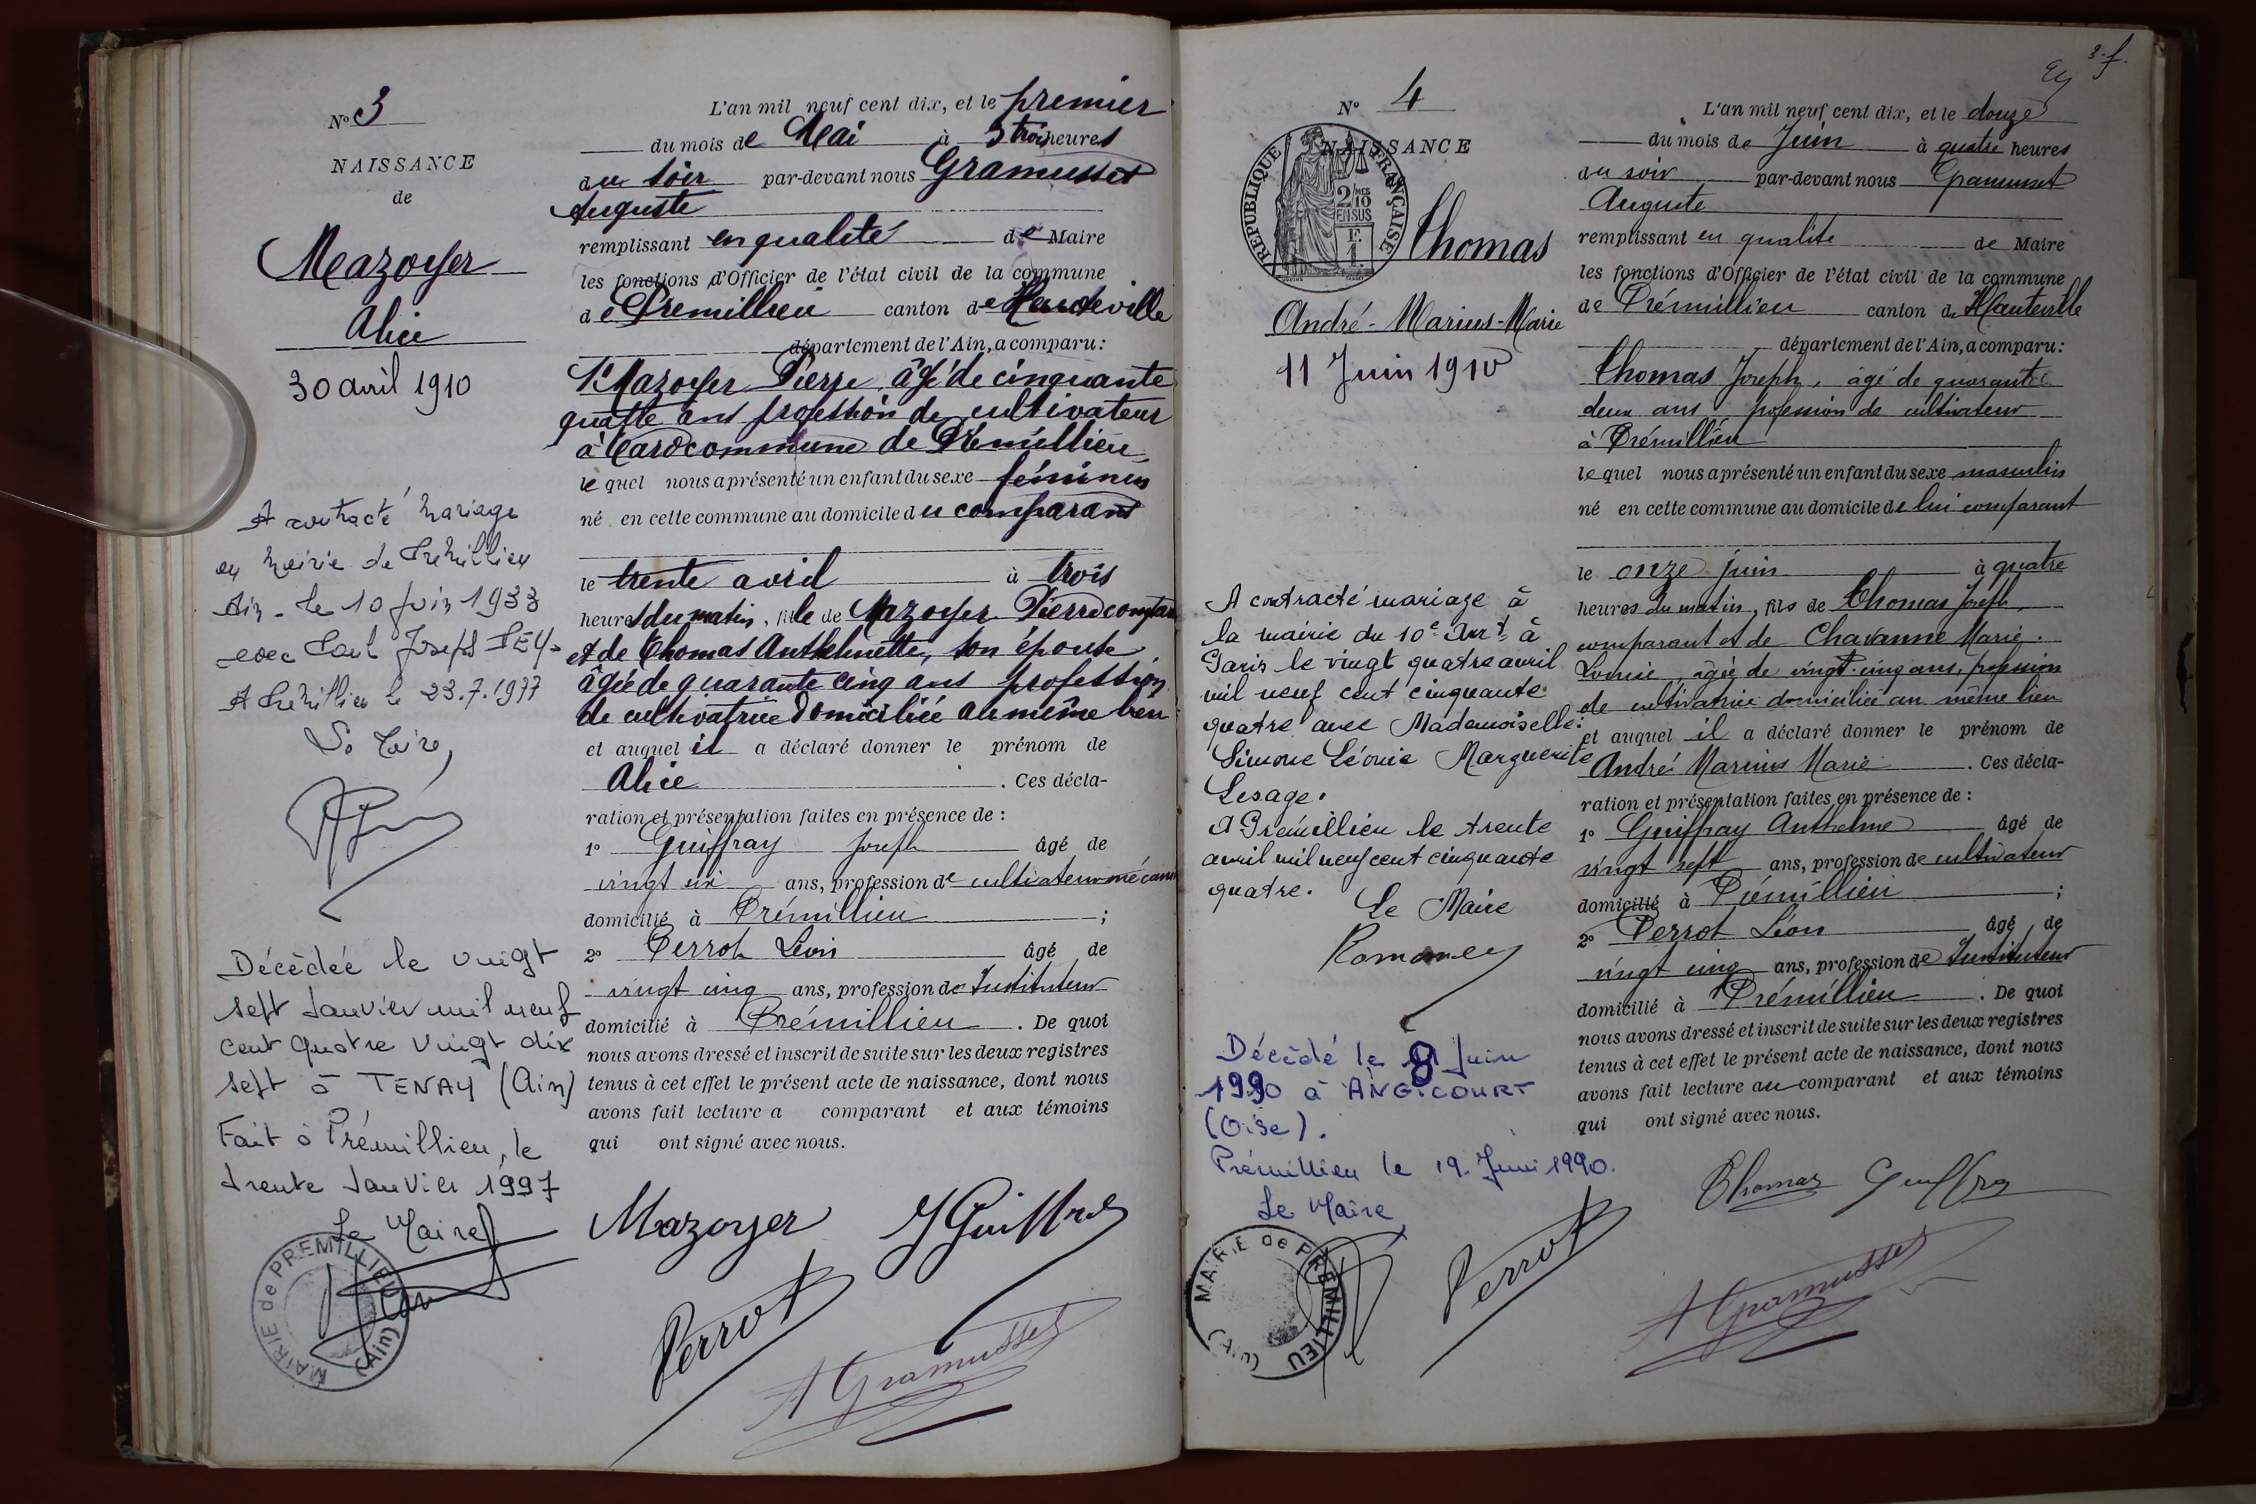 N° 3
NAISSANCE
de
Mazoyer
Alice
30 avril 1910
A contracté mariage
en mairie de Prémillieu
Ain - le 10 juin 1933
avec Paul Joseph
A Prémillieu le 23.7.1977
Le Maire,
Décédée le vingt
sept Janvier mil neuf
cent quatre vingt dix
sept à TENAY (Ain)
Fait à Prémillieu, le
trente Janvier 1997
Le Maire
MAIRIE de PREMILLIEU (Ain)
L'an mil neuf cent dix, et le premier
du mois de Mai à 3 trois heures
du soir par-devant nous Gramusset
Auguste
remplissant en qualité de Maire
les fonctions d'Officier de l'état civil de la commune
de Prémillieu canton de Hauteville
département de l'Ain, a comparu:
Mazoyer Pierre, âgé de cinquante
quatre ans profession de cultivateur
à commune de Prémillieu,
le quel nous a présenté un enfant du sexe féminin
né en cette commune au domicile du comparant
le trente avril à trois
heures du matin, fille de Mazoyer Pierre compara
et de Thomas Anthelmette, son épouse
âgée de quarante cinq ans profession
de cultivatrice domiciliée au même lieu
et auquel il a déclaré donner le prénom de
Alice. Ces décla-
ration et présentation faites en présence de :
1° Guiffray Joseph âgé de
vingt six ans, profession de cultivateur mécani
domicilié à Prémillieu ;
2° Perrot Léon âgé de
vingt cinq ans, profession de Instituteur
domicilié à Prémillieu. De quoi
nous avons dressé et inscrit de suite sur les deux registres
tenus à cet effet le présent acte de naissance, dont nous
avons fait lecture a comparant et aux témoins
qui ont signé avec nous.
Mazoyer J Guiffray
Perrot
A Gramusset
3. f.
N° 4
NAISSANCE
RÉPUBLIQUE FRANÇAISE
2/10
EN SUS
Thomas
André-Marius-Marie
11 Juin 1910
A contracté mariage à
la mairie du 10e Arrt à
Paris le vingt quatre avril
mil neuf cent cinquante
quatre avec Mademoiselle:
Simone Léonie Marguerite
Lesage.
A Prémillieu le trente
avril mil neuf cent cinquante
quatre.
Le Maire
Décédé le 8 Juin
1990 à ANGICOURT
(Oise).
Prémillieu le 19 Juin 1990.
Le Maire
MAIRIE de PREMILLIEU (Ain)
L'an mil neuf cent dix, et le douze
du mois de Juin à quatre heures
du soir par-devant nous Gramusset
Auguste
remplissant en qualité de Maire
les fonctions d'Officier de l'état civil de la commune
de Prémillieu canton de Hauteville
département de l'Ain, a comparu:
Thomas Joseph, âgé de quarante
deux ans, profession de cultivateur
à Prémillieu
le quel nous a présenté un enfant du sexe masculin
né en cette commune au domicile de lui comparant
le onze juin à quatre
heures du matin, fils de Thomas Joseph,
comparant et de Chavanne Marie.
Louise, âgée de vingt-cinq ans, profession
de cultivatrice domiciliée au même lieu
et auquel il a déclaré donner le prénom de
André Marius Marie. Ces décla-
ration et présentation faites en présence de :
1° Guiffray Anthelme âgé de
vingt sept ans, profession de cultivateur
domicilié à Prémillieu ;
2° Perrot Léon âgé de
vingt cinq ans, profession de Instituteur
domicilié à Prémillieu. De quoi
nous avons dressé et inscrit de suite sur les deux registres
tenus à cet effet le présent acte de naissance, dont nous
avons fait lecture au comparant et aux témoins
qui ont signé avec nous.
Thomas Guiffray
Perrot
A Gramusset